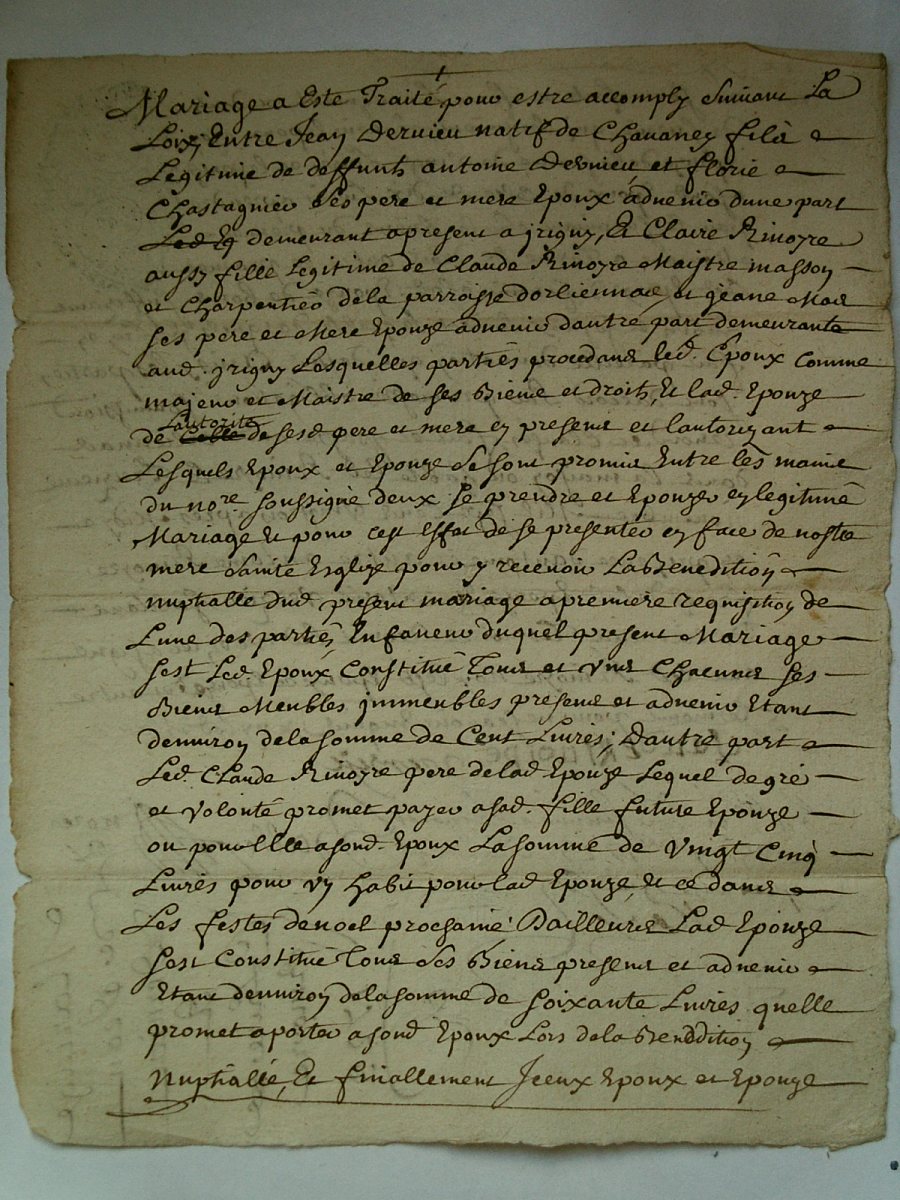 Mariage a Este Traité pour estre accomply Suivant La
Loix, Entre Jean Dervieu natif de Chavaney fils
Legitime de deffunts antoine Dervieu et florie
Chastagnier ses pere et mere Epoux advenir dune part
demeurant apresent a jrigny, Et Claire Rivoyre
aussy fille Legitime de Claude Rivoyre Maistre masson
et Charpentier de la parroisse dorliennas, et jeane
ses pere et Mere Epouze advenir dautre part demeurante
aud. jrigny Lesquelles parties procedans led. Epoux Comme
majeur et Maistre de ses Biens et droits, Et lad. Epouze
de Lautorité de sesd pere et mere cy presens et lautorizant
Lesquels Epoux et Epouze se sont promis Entre les mains
du nore. soussigné deux se prendre et Epouzer en legitime
Mariage Et pour cest Effet de se presenter en face de nostre
mere Sainte Esglize pour y recevoir La Benedition
nuptialle dud. present mariage a premiere requisition de
Lune des parties, En faveur duquel present Mariage
sest Led. Epoux Constitué Tous et Uns Chacuns ses
Biens Meubles jmmeubles presens et advenir Etant
denviron de la somme de Cent Livres; Dautre part
Led. Claude Rivoyre pere de lad Epouze Lequel de gré
et Volonté promet payer a sad. fille future Epouze
ou pour Elle a sond. Epoux La somme de Vingt Cinq
Livres pour Un habit pour lad Epouze, Et ce dans
Les festes de noel prochaine. Dailleurs Lad Epouze
sest Constitué Tous ses Biens presens et advenir
Etant denviron de la somme de soixante Livres quelle
promet aporter a sond Epoux Lors de la Benddition
Nuptialle, Et finallement Jceux Epoux et Epouze